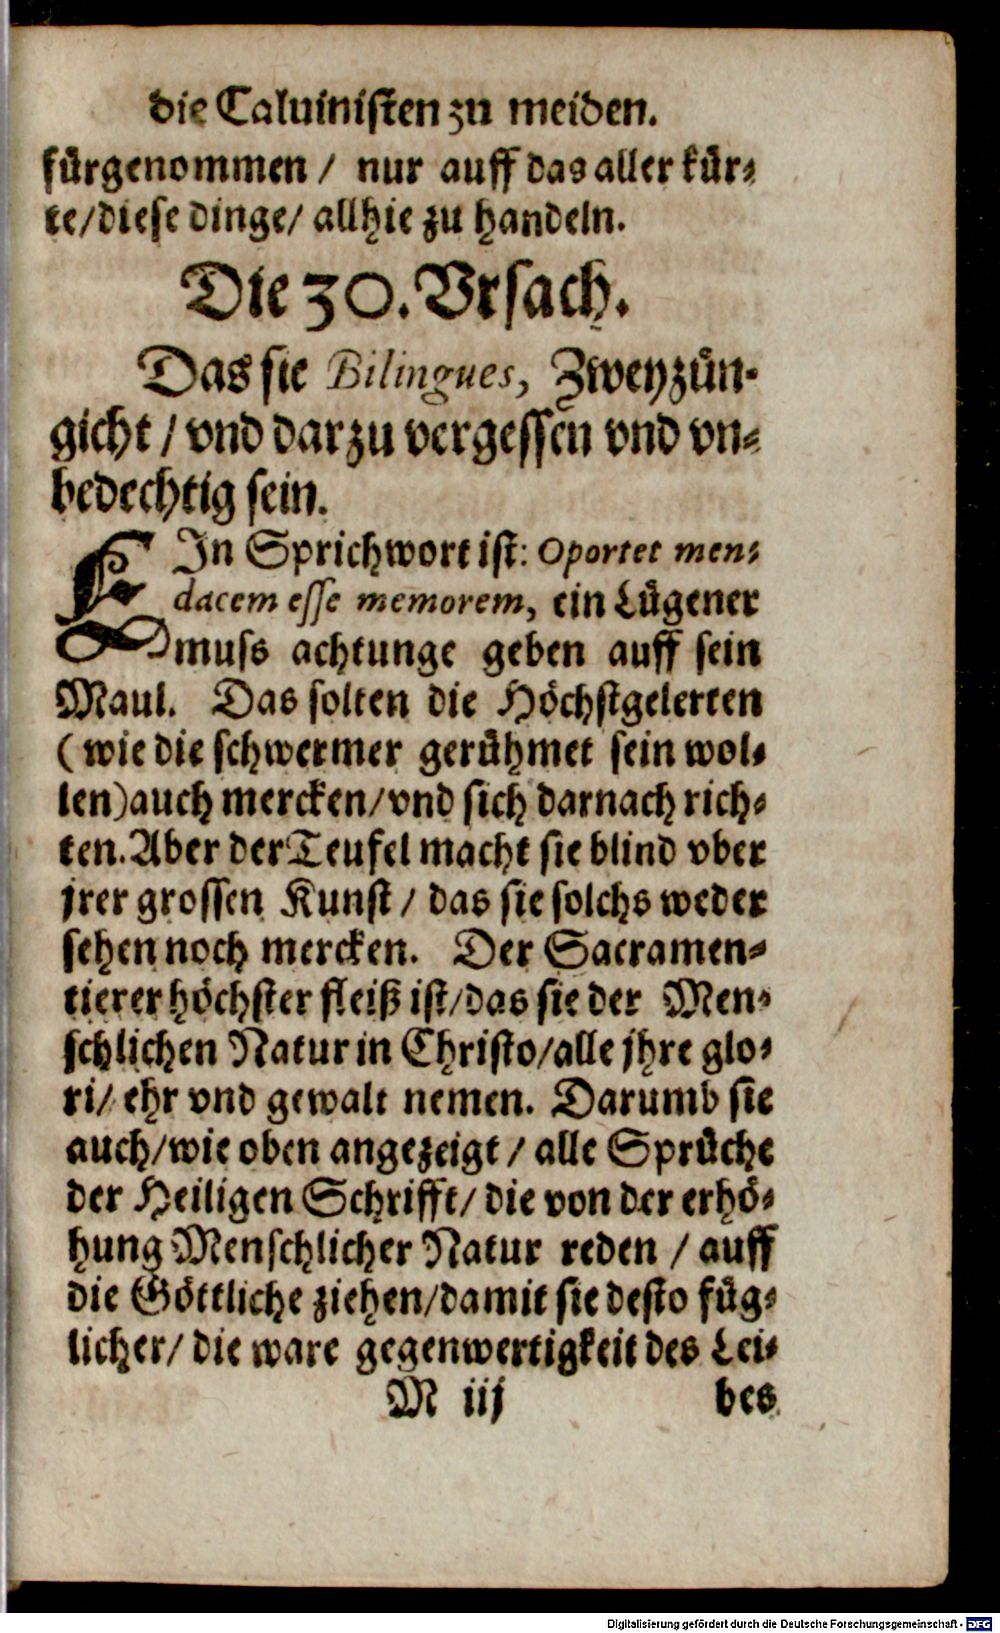 die Caluinisten zu meiden.
fürgenommen / nur auff das aller kür-
te/diese dinge/ allhie zu handeln.
Die 30. Vrsach.
Das sie Bilingues, Zweyzün-
gicht / vnd darzu vergessen vnd vn-
bedechtig sein.
EIn Sprichwort ist: Oportet men-
dacem esse memorem, ein Lügener
muss achtunge geben auff sein
Maul. Das solten die Höchstgelerten
(wie die schwermer gerühmet sein wol-
len)auch mercken/vnd sich darnach rich-
ten.Aber der Teufel macht sie blind vber
jrer grossen Kunst / das sie solchs weder
sehen noch mercken. Der Sacramen-
tierer höchster fleiß ist/das sie der Men-
schlichen Natur in Christo/alle jhre glo-
ri/ ehr vnd gewalt nemen. Darumb sie
auch/wie oben angezeigt / alle Sprüche
der Heiligen Schrifft/ die von der erhö-
hung Menschlicher Natur reden / auff
die Göttliche ziehen/damit sie desto füg-
licher/ die ware gegenwertigkeit des Lei-
M iij bes
Digitalisierung gefördert durch die Deutsche Forschungsgemeinschaft - DFG